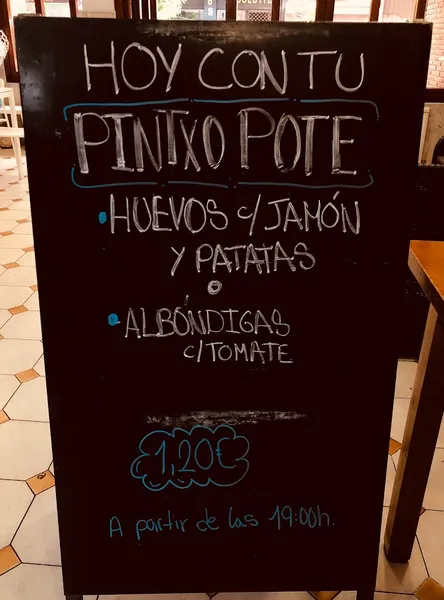 HOY CON TU
PINTXO POTE
• HUEVOS c/ JAMÓN
Y PATATAS
o
• ALBÓNDIGAS
c/ TOMATE
1,20€
A partir de las 19:00h.